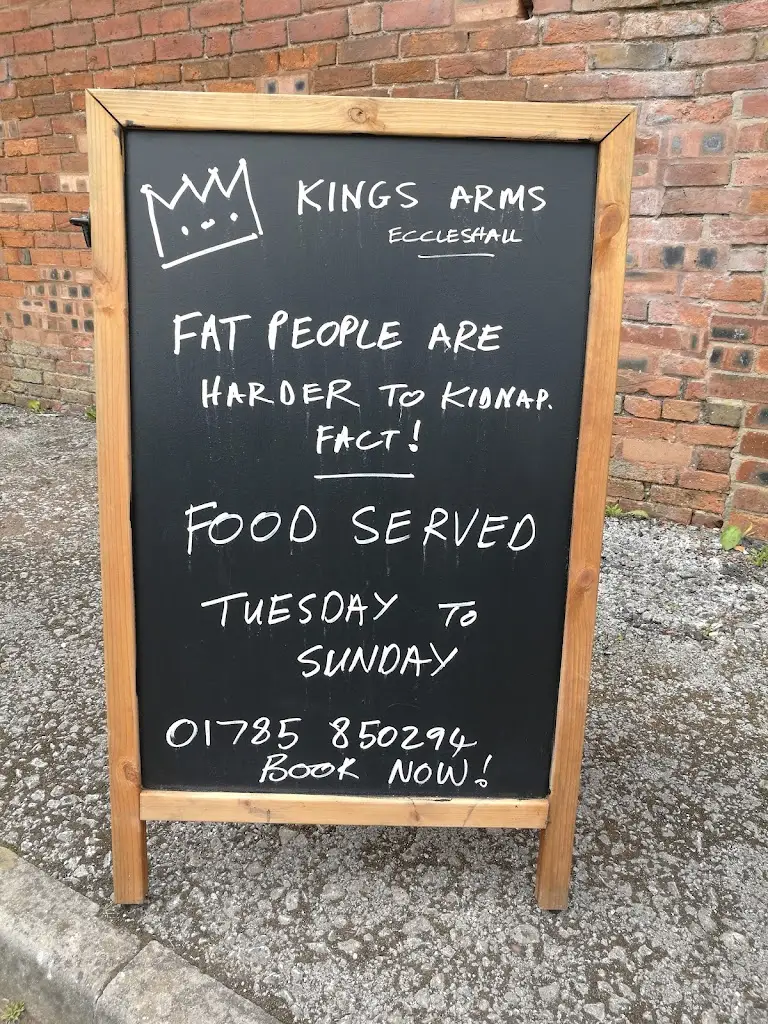 KINGS ARMS
ECCLESHALL
FAT PEOPLE ARE
HARDER TO KIDNAP.
FACT!
FOOD SERVED
TUESDAY TO
SUNDAY
01785 850294
BOOK NOW!